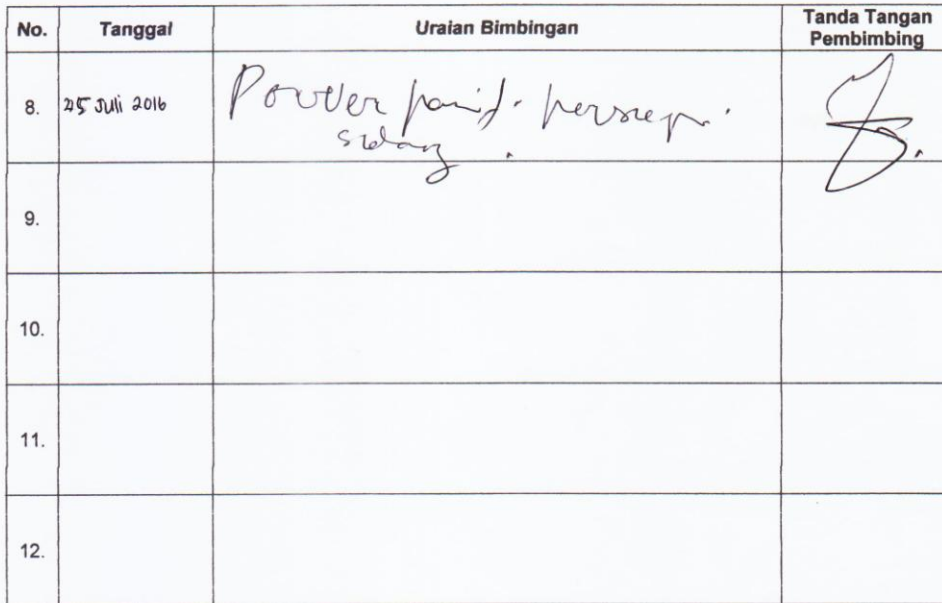 No. Tanggal Uraian Bimbingan Tanda Tangan
Pembimbing
8. 25 Juli 2016 Power point
sidang.
9.
10.
11.
12.